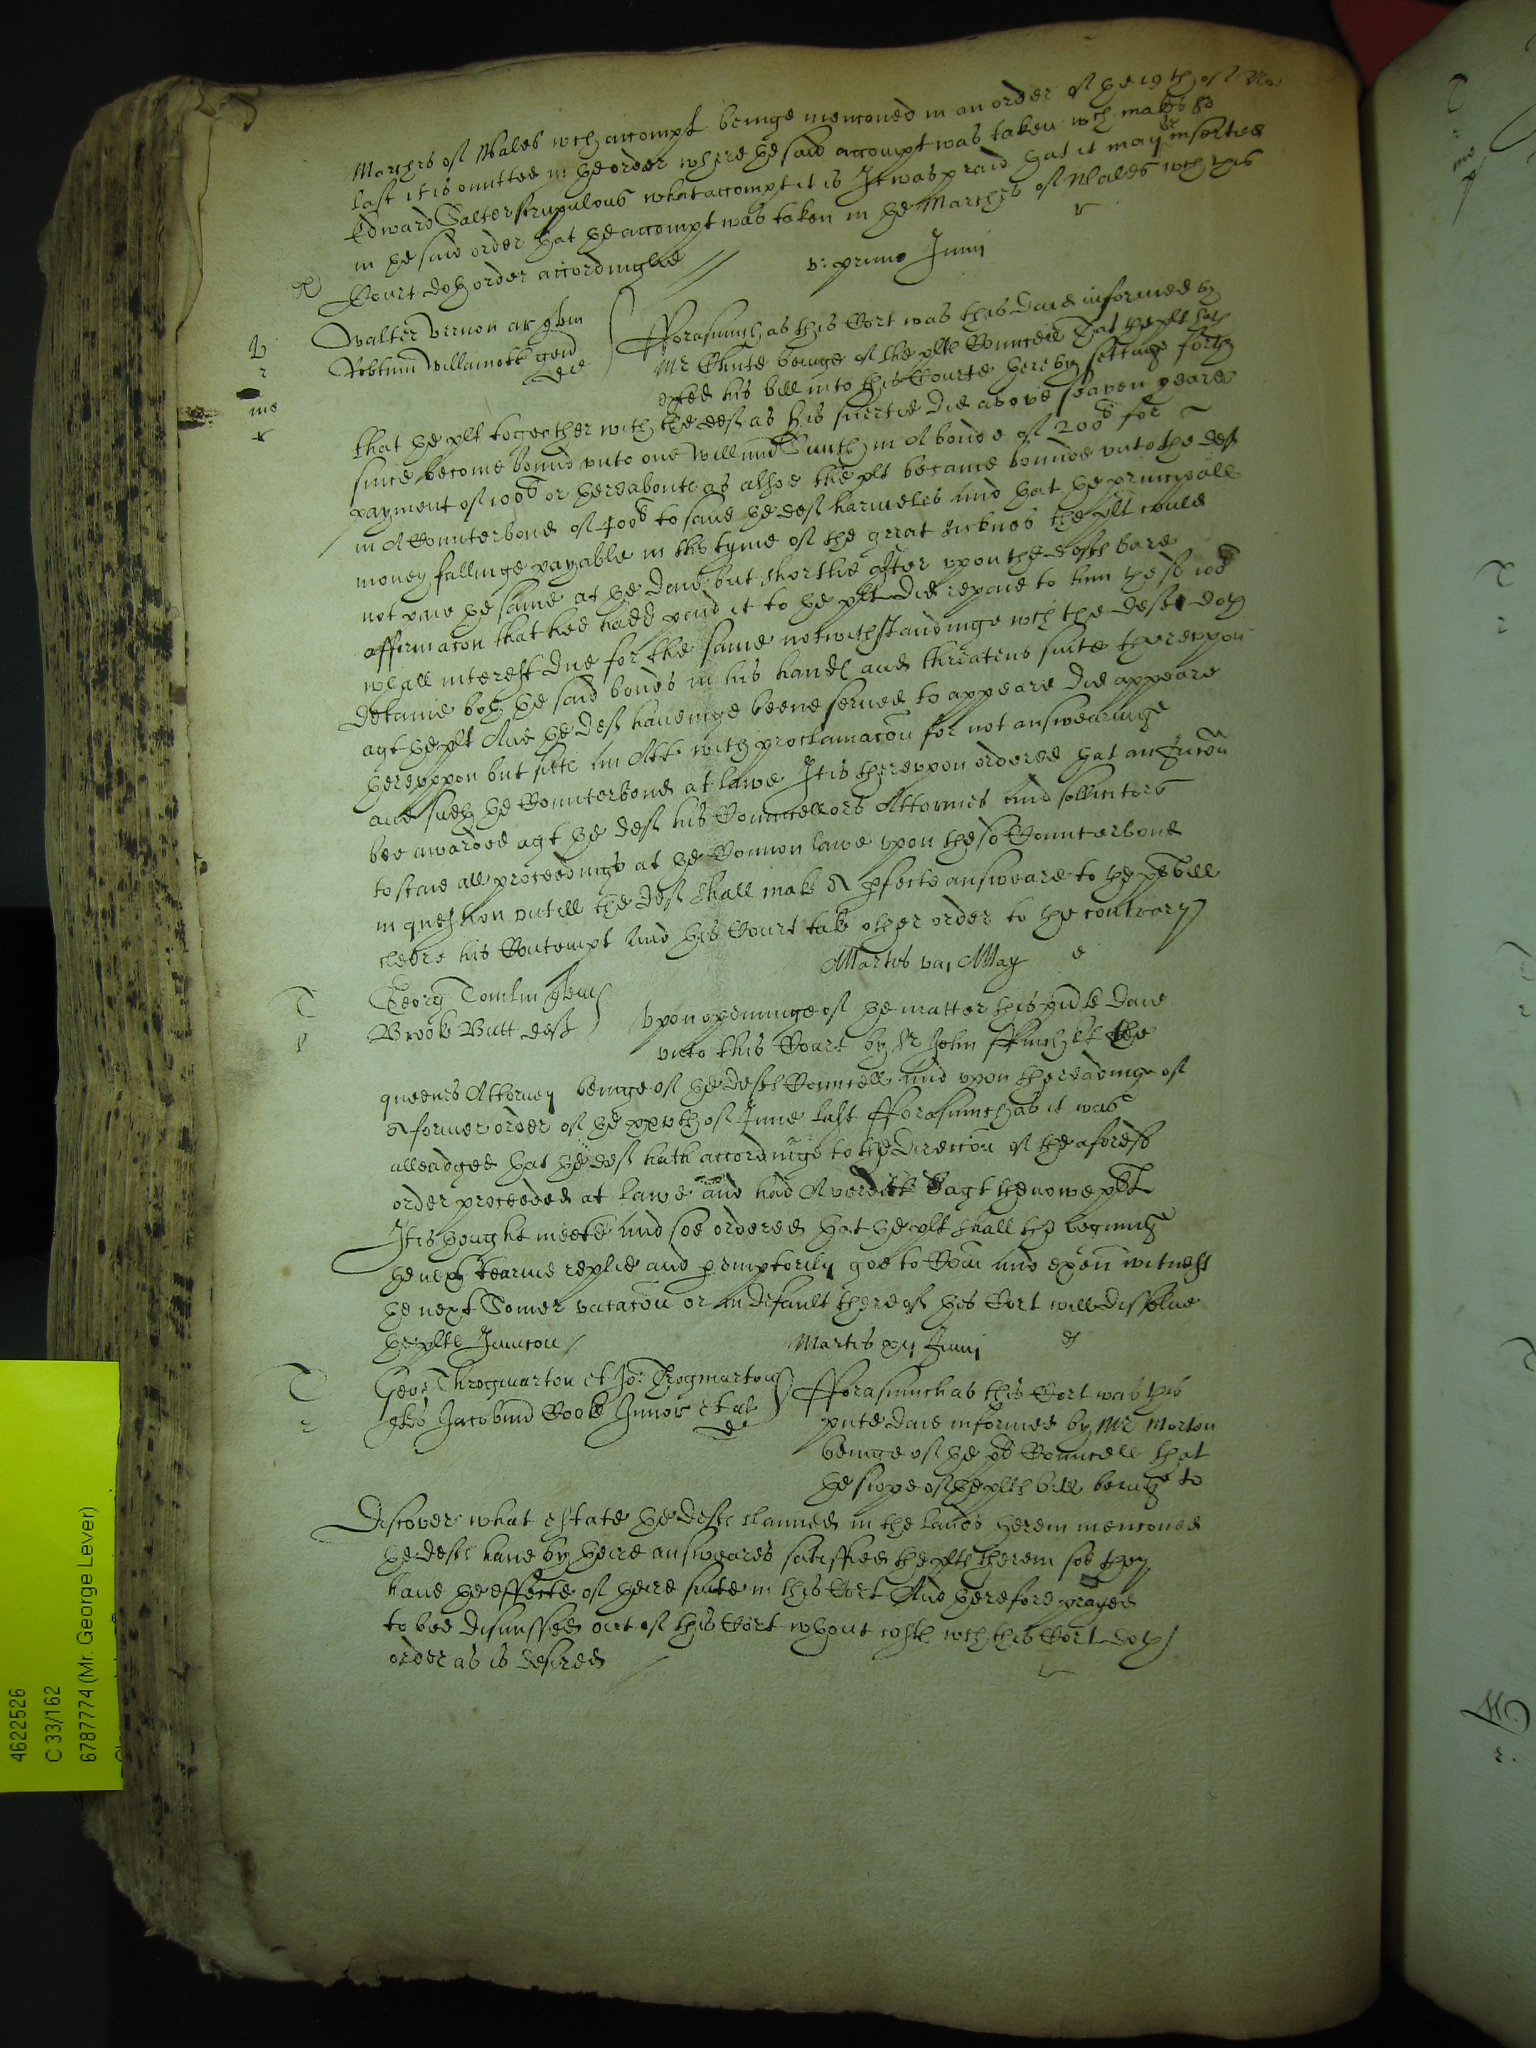 Marches of Wales wch accompt beinge menconed in an order of the 19th of No
last it is omitted in the order where the said accompt was taken wch makes Sr
Edward Salter scrupulous what accompt it is It was praid that it may be inserted
in the said order that the accompt was taken in the Marches of Wales wch this
Court doth order accordinglie
primo Junij
Walter Vernon ar quer
Willamott gen
def
Fforasmuch as this Cort was this daie informed by
Mr Chute beinge of the plts Councell that the plt hath
his bill into this Courte thereby settinge forth
that the plt together with the deft as his suertie did above seaven yeares
since become bound unto one Willm Smith in A bonde of 200l for
payment of 100l or thereabouts as alsoe the plt became bounde unto the deft
in A Counterbond of 400l to save the deft harmeles and that the principall
money fallinge payable in the tyme of the great sicknes the plt could
not paie the same at the daie but shortlie after upon the defts bare
affirmacon that hee hadd paid it to the plt did repaie to him the sd 100l
wth all interest due for the same notwithstandinge wch the deft doth
detaine both the said bonds in his hands and threatens suite thereuppon
agt the plt And the deft haveinge beene served to appeare did appeare
thereuppon but sitts an Att with proclamacon for not answearinge
and sueth the Counterbond at lawe It is thereuppon ordered that an Juncon
bee awarded agt the deft his Councellors Attornies and sollicitors
to staie all proceedings at the Common lawe upon the sd Counterbond
in question untill the deft shall make A pfecte answeare to the plts bill
cleere his Contempt and this Court take other order to the contrary
Martis May
Georg Tomlin quer
Brooke Butt deft
Upon openinge of the matter this pnte daie
unto this Court by Sr John Ffinch kt the
queenes Attorney beinge of the defts Councell and upon the readinge of
A former order of the of June last Fforasmuch as it was
alleadged that the deft hath accordinge to the direccon of the aforesd
order proceeded at lawe and had A verdict agt the nowe plt
It is thought meete and soe ordered that the plt shall the beginninge
the next tearme replie and peremptorily goe to Com and exam witnesses
the next Somer vacacon or in default thereof this Cort will dissolve
the plts Juncon
Martis Junij
Geo: Throgmarton et Jo: Throgmarton
quer Jacobum Cooke Junior et al
def
Fforasmuch as this Cort was this
pnte daie informed by Mr Morton
beinge of the Councell that
the scope of the plts bill beinge to
discover what estate the defts claimed in the lands therein menconed
the defts have by theire answeares satisfied the plts therein soe they
have the effecte of theire suite in this Cort And therefore prayed
to bee dismissed out of this Cort wthout costs wch this Cort doth
order as is desired
4622526
C 33/162
6787774 (Mr. George Lever)